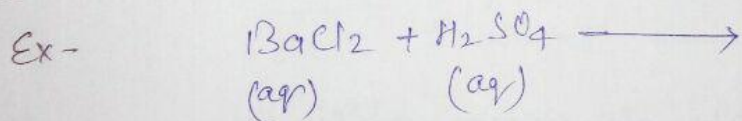 Ex- BaCl2 + H2SO4 ⟶
(aq) (aq)